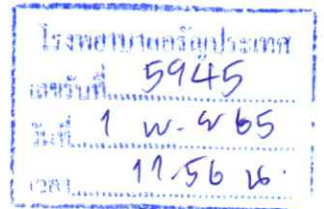 โรงพยาบาลอรัญประเทศ
เลขรับที่ 5945
วันที่ 1 พ.ย 65
เวลา 11.56 น.